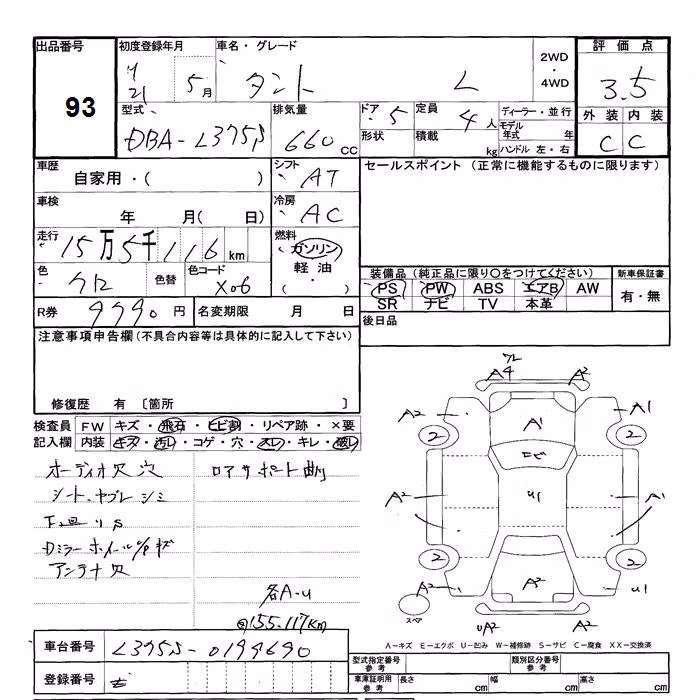 出品番号 初度登録年月 車名・グレード 2WD・4WD 評価点
93 H21 5月 タント L 3.5
型式 排気量 ドア 5 定員 4人 ディーラー・並行 外装 内装
DBA-L375S 660cc 形状 積載 kg モデル年式 年 ハンドル 左・右 C C
車歴 シフト セールスポイント (正常に機能するものに限ります)
自家用・( ) AT
車検 冷房
年 月( 日) AC
走行 燃料
15万5千116km ガソリン
色 色替 色コード 軽油 装備品(純正品に限り○をつけてください) 新車保証書
クロ X06 ・( ) PS PW ABS エアB AW 有・無
R券 9990円 名変期限 月 日 SR ナビ TV 本革
注意事項申告欄(不具合内容等は具体的に記入して下さい) 後日品
修復歴 有 〔箇所 〕
検査員 FW キズ・飛石・ヒビ割・リペア跡・×要
記入欄 内装 キズ・汚レ・コゲ・穴・スレ・キレ・破レ
オーディオ穴 穴 ロアサポート曲り
シート ヤブレ シミ
Dミラー ホイールC/P キズ
アンテナ穴
各A-U
155.117km
A4 A2
A2 A1 A1
2 2
ヒビ
A2 U1 A1
2 2
A2 A2 U1
スペア UA2 A2
A-キズ E-エクボ U-凹み W-補修跡 S-サビ C-腐食 XX-交換済
車台番号 L375S-0199690
型式指定番号 参考 類別区分番号 参考
登録番号
車庫証明用 参考 長さ cm 幅 cm 高さ cm